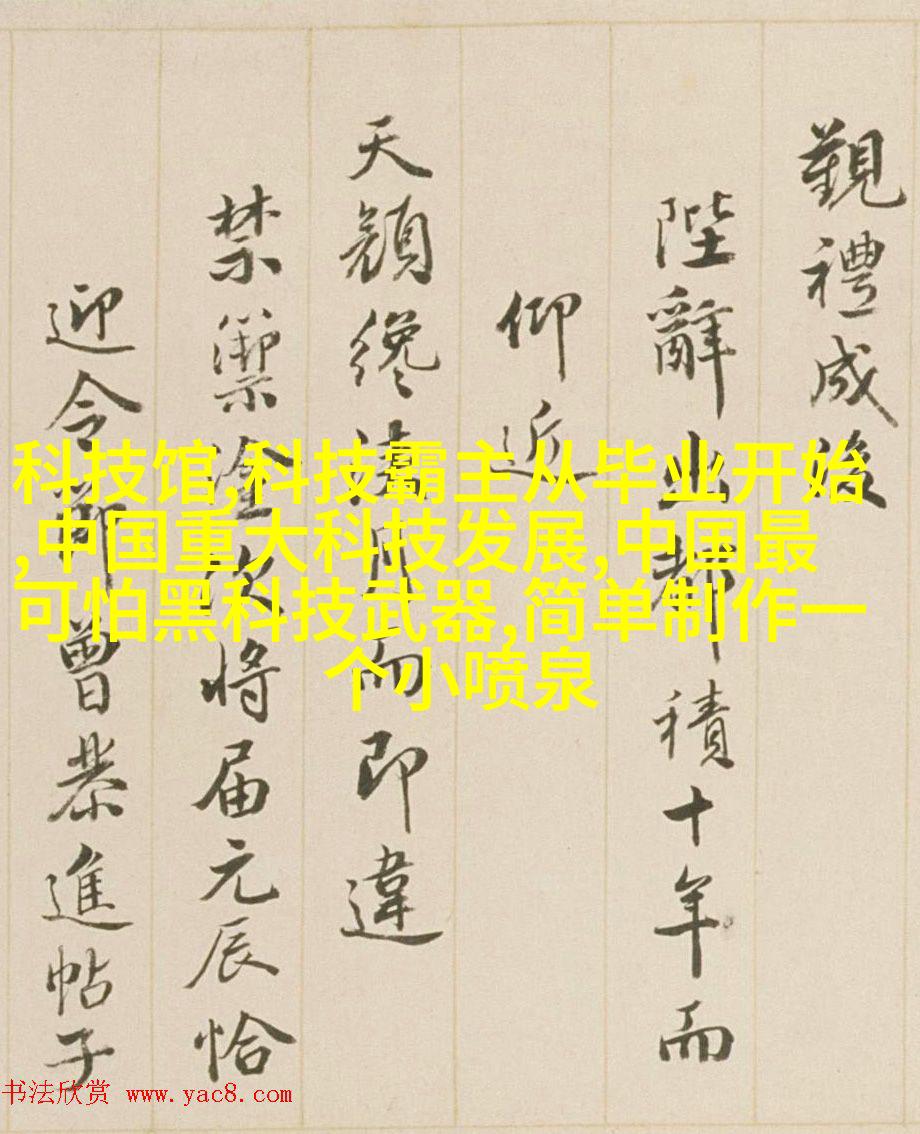 覲禮成後
陛辭出都積十年而
仰近
天顏纔浹月而即違
禁籞塗次將届元辰恰
迎令節曾恭進帖子
科技馆,科技霸主从毕业开始
,中国重大科技发展,中国最
可怕黑科技武器,简单制作一
个小喷泉
书法欣赏 www.yac8.com